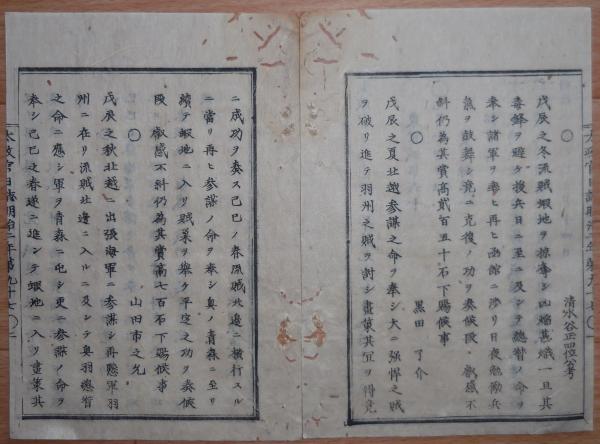 清水谷正四位公考
戊辰之冬流賊蝦地ヲ掠奪シ凶焔甚熾一旦其
毒鋒ヲ避ケ援兵日ニ至ニ及ンテ總督ノ命ヲ
奉シ諸軍ヲ率ヒ再ヒ函館ニ渉リ日夜勉勵兵
氣ヲ鼓舞シ竟ニ克復ノ功ヲ奏候段 叡感不
斜仍為其賞髙貳百五十石下賜候事
○
黒田 了介
戊辰之夏北越参謀之命ヲ奉シ大ニ強悍之賊
ヲ破リ進テ羽州之賊ヲ討シ畫策其冝ヲ得竟
ニ成功ヲ奏ス己巳ノ春流賊北邊ニ横行スル
ニ當リ再ヒ参謀ノ命ヲ奉シ奥ノ青森ニ至リ
續テ蝦地ニ入リ賊巣ヲ撃ケ平定之功ヲ奏候
段 叡感不斜仍為其賞髙七百石下賜候事
○
山田市之允
戊辰之秋北越ニ出張海軍ニ参謀シ再懸軍羽
州ニ在リ流賊北邊ニ入ルニ及ンテ奥羽總督
之命ニ應シ軍ヲ青森ニ屯シ更ニ参謀ノ命ヲ
奉シ己巳之春遂ニ進ンテ蝦地ニ入リ畫策其
太政官日誌明治二年第九十七